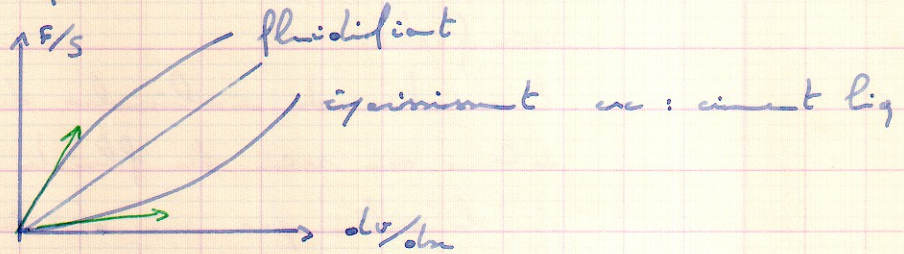 F/S
fluidifiant
épaississant ex : ciment liq
dv/dx